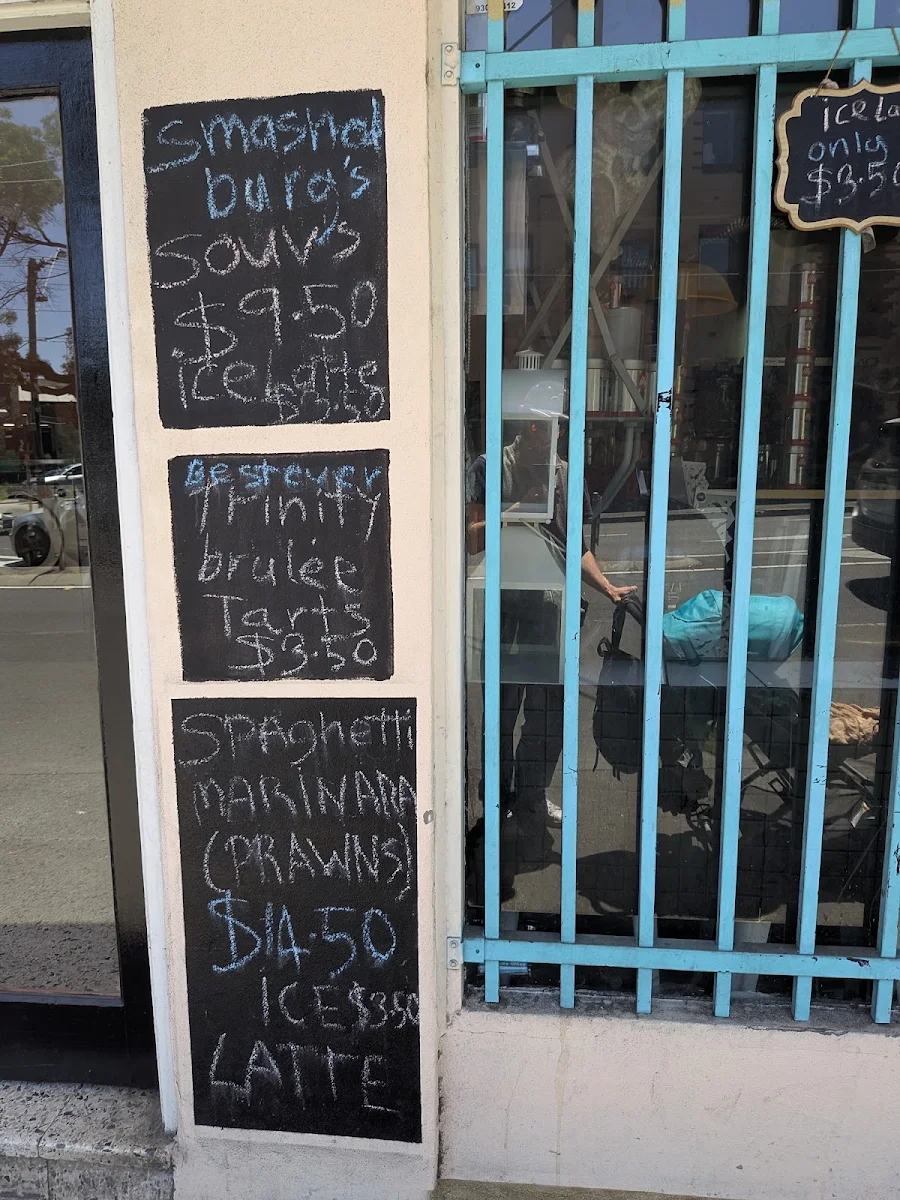 Smashed
burg's
Souv's
$9.50
iceLatte
$3.50
Best ever
Trinity
brulée
Tarts
$3.50
SPAghetti
MARINARA
(PRAWNS)
$14.50
ICE $3.50
LATTE
ice La
only
$3.50